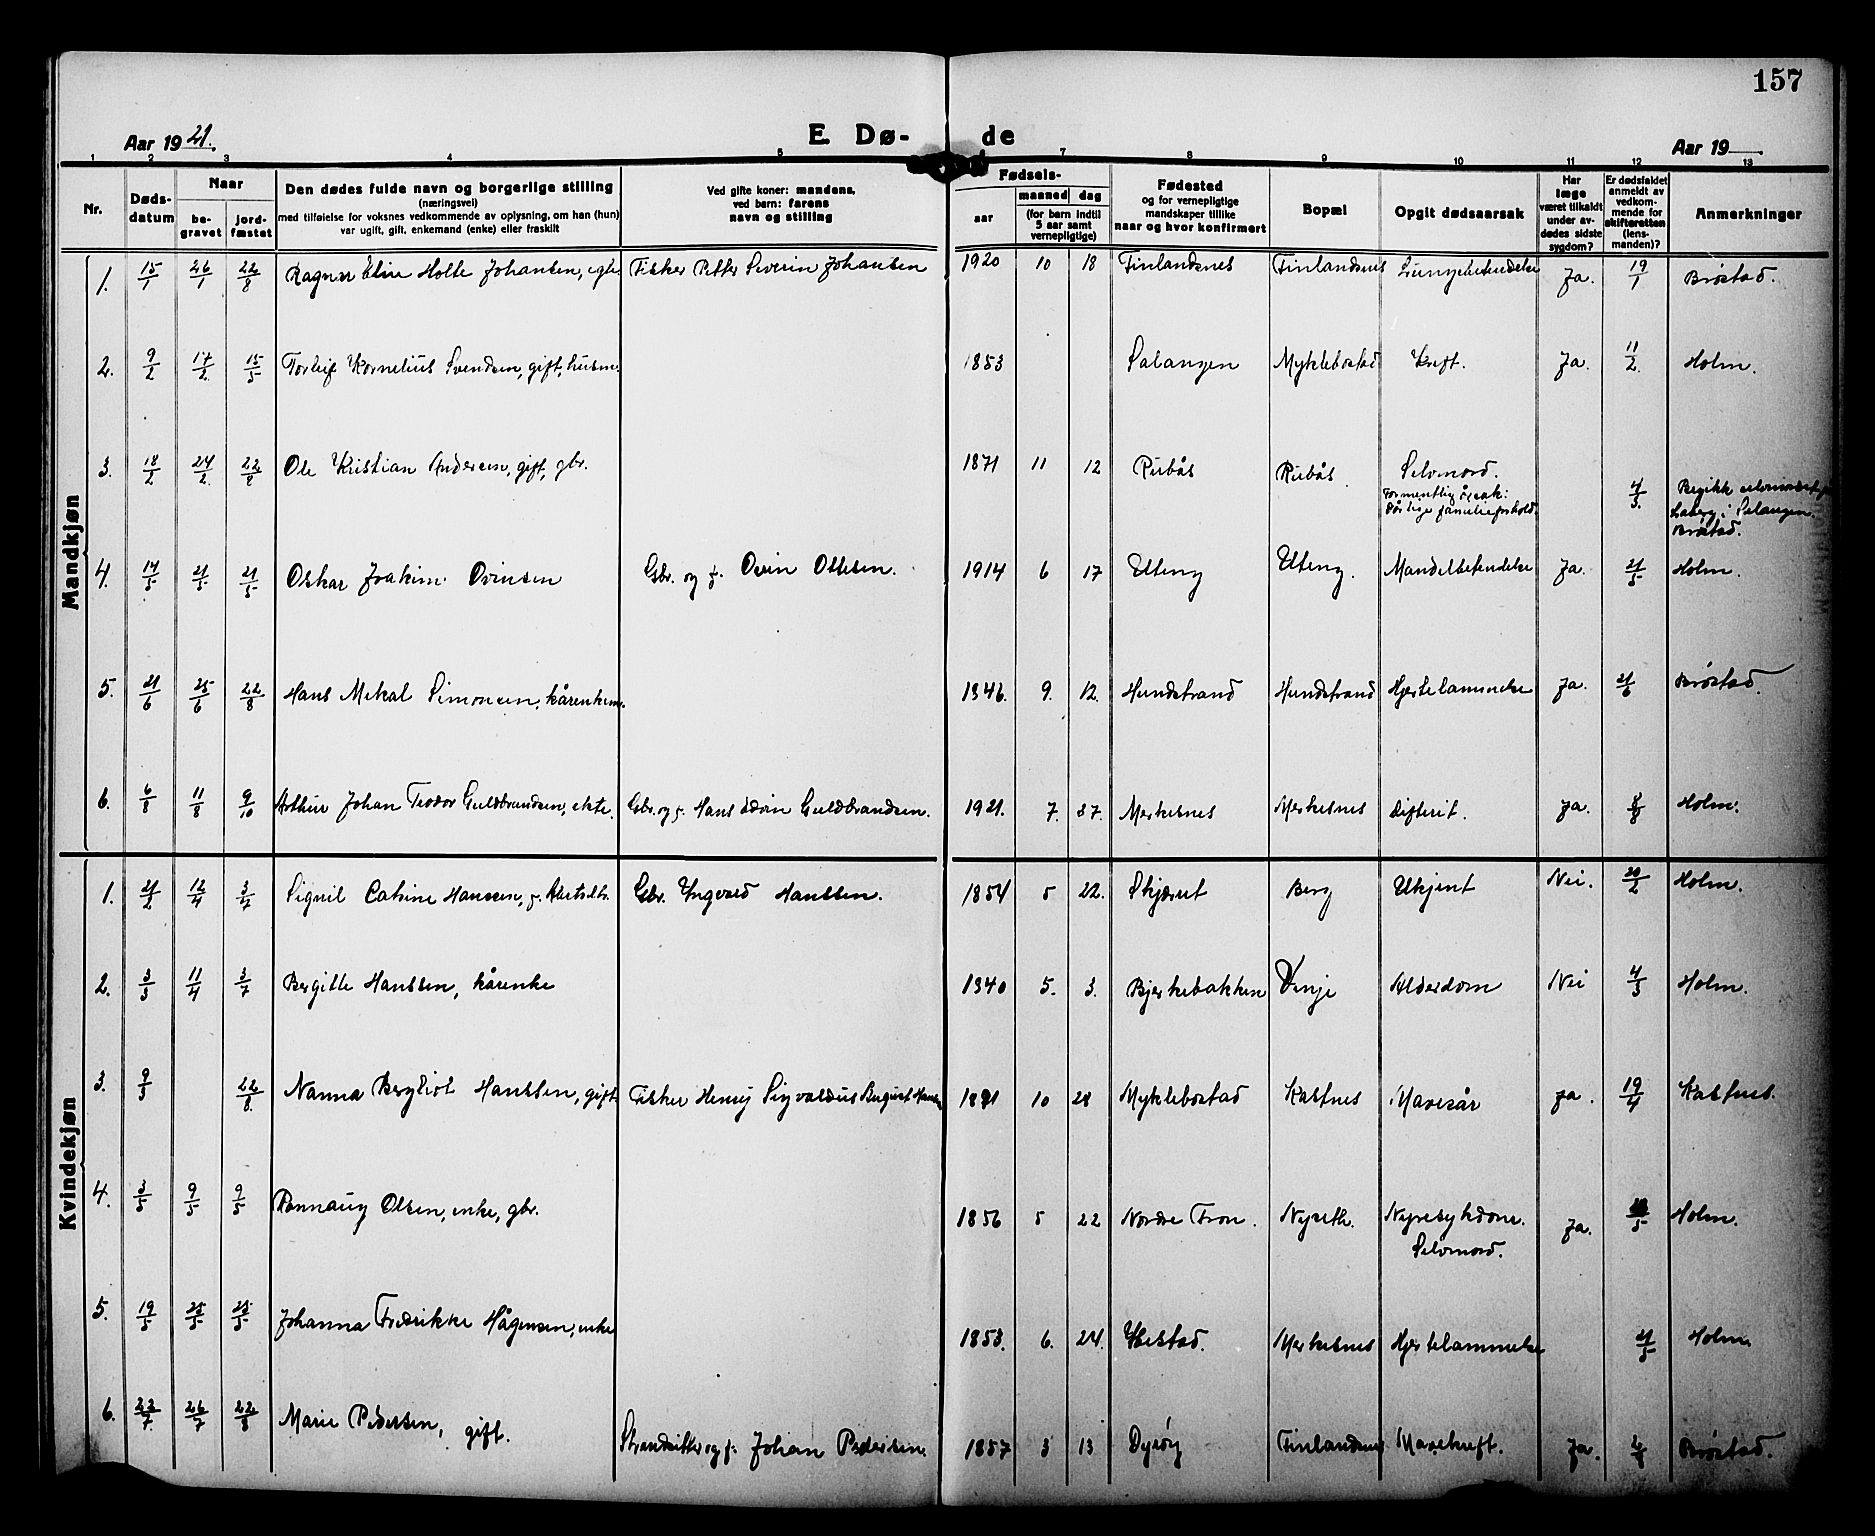 157
Aar 1921.
E. Dø- de
Aar 19
1 2 3 4 5 7 8 9 10 11 12 13
Nr.
Døds-
datum
Naar
be-
gravet
jord-
fæstet
Den dødes fulde navn og borgerlige stilling
(næringsvei)
med tilføielse for voksnes vedkommende av oplysning, om han (hun)
var ugift, gift, enkemand (enke) eller fraskilt
Ved gifte koner: mandens,
ved barn: farens
navn og stilling
Fødsels-
aar
maaned dag
(for barn indtil
5 aar samt
vernepligtige)
Fødested
og for vernepligtige
mandskaper tillike
naar og hvor konfirmert
Bopæl
Opgit dødsaarsak
Har
læge
været tilkaldt
under av-
dødes sidste
sygdom?
Er dødsfaldet
anmeldt av
vedkom-
mende for
skifteretten
(lens-
manden)?
Anmerkninger
Mandkjøn
1. 15/1 26/1 22/8 Ragnar Elin Holte Johansen, egte Fisker Petter Severin Johansen 1920 10 18 Finlandsnes Finlandsnes Lungebetendelse Ja. 19/1 Brøstad.
2. 9/2 17/2 15/5 Torleif Kornelius Svendsen, gift, husm. 1853 Salangen Myklebostad Kreft. Ja. 11/2 Holm.
3. 18/2 24/2 22/8 Ole Kristian Andersen, gift, gbr. 1871 11 12 Rubås Rubås Selvmord.
Formentlig årsak:
Dårlige familieforhold.
4/3. Begikk selvmordet på
Laberg i Salangen.
Brøstad.
4. 14/5 21/5 21/5 Oskar Joakim Ovinsen Gbr. og f. Ovin Ottesen. 1914 6 17 Elteng Elteng. Mandelbetendelse Ja. 21/5 Holm.
5. 21/6 25/6 22/8 Hans Mekal Simonsen, kårenkem. 1846. 9. 12. Hundstrand Hundstrand Hjertelammelse Ja. 21/6 Brøstad.
6. 6/8 11/8 9/10 Arthur Johan Teodor Guldbrandsen, ekte. Gbr. og f. Hans Edvin Guldbrandsen. 1921. 7. 27. Merkesnes Merkesnes Difterit. Ja. 8/8 Holm.
Kvindekjøn
1. 21/2 12/4 3/7 Signil Catrine Hanssen, f. Gbr. Yngvard Hanssen. 1854 5 22. Skjæret Berg Ukjent Nei. 28/2 Holm.
2. 3/3 11/4 3/7 Bergitte Hanssen, kårenke 1840 5. 3. Bjerkebakken Vinje Alderdom Nei 4/3 Holm.
3. 9/3 22/8. Nanna Bergliot Hanssen, gift Fisker Henry Sigvaldus August Hanssen 1891 10 28 Myklebostad Kastnes Mavesår ja. 19/4 Kastnes.
4. 3/5 9/5 9/5 Rannaug Olsen, enke, gbr. 1856 5 22 Nordre Fron. Nyseth. Nyresykdom.
Selvmord.
Ja. Holm.
5. 19/5 25/5 25/5 Johanna Fredrikke Hågensen, enke 1853. 6. 24. Ibestad. Merkesnes Hjertelammelse 21/5 Holm
6. 22/7 26/7 22/8 Marie Pedersen, gift. Strandsitter og f. Johan Pedersen. 1857 3 13 Dyrøy Finlandsnes Mavekreft. Ja. Brøstad.